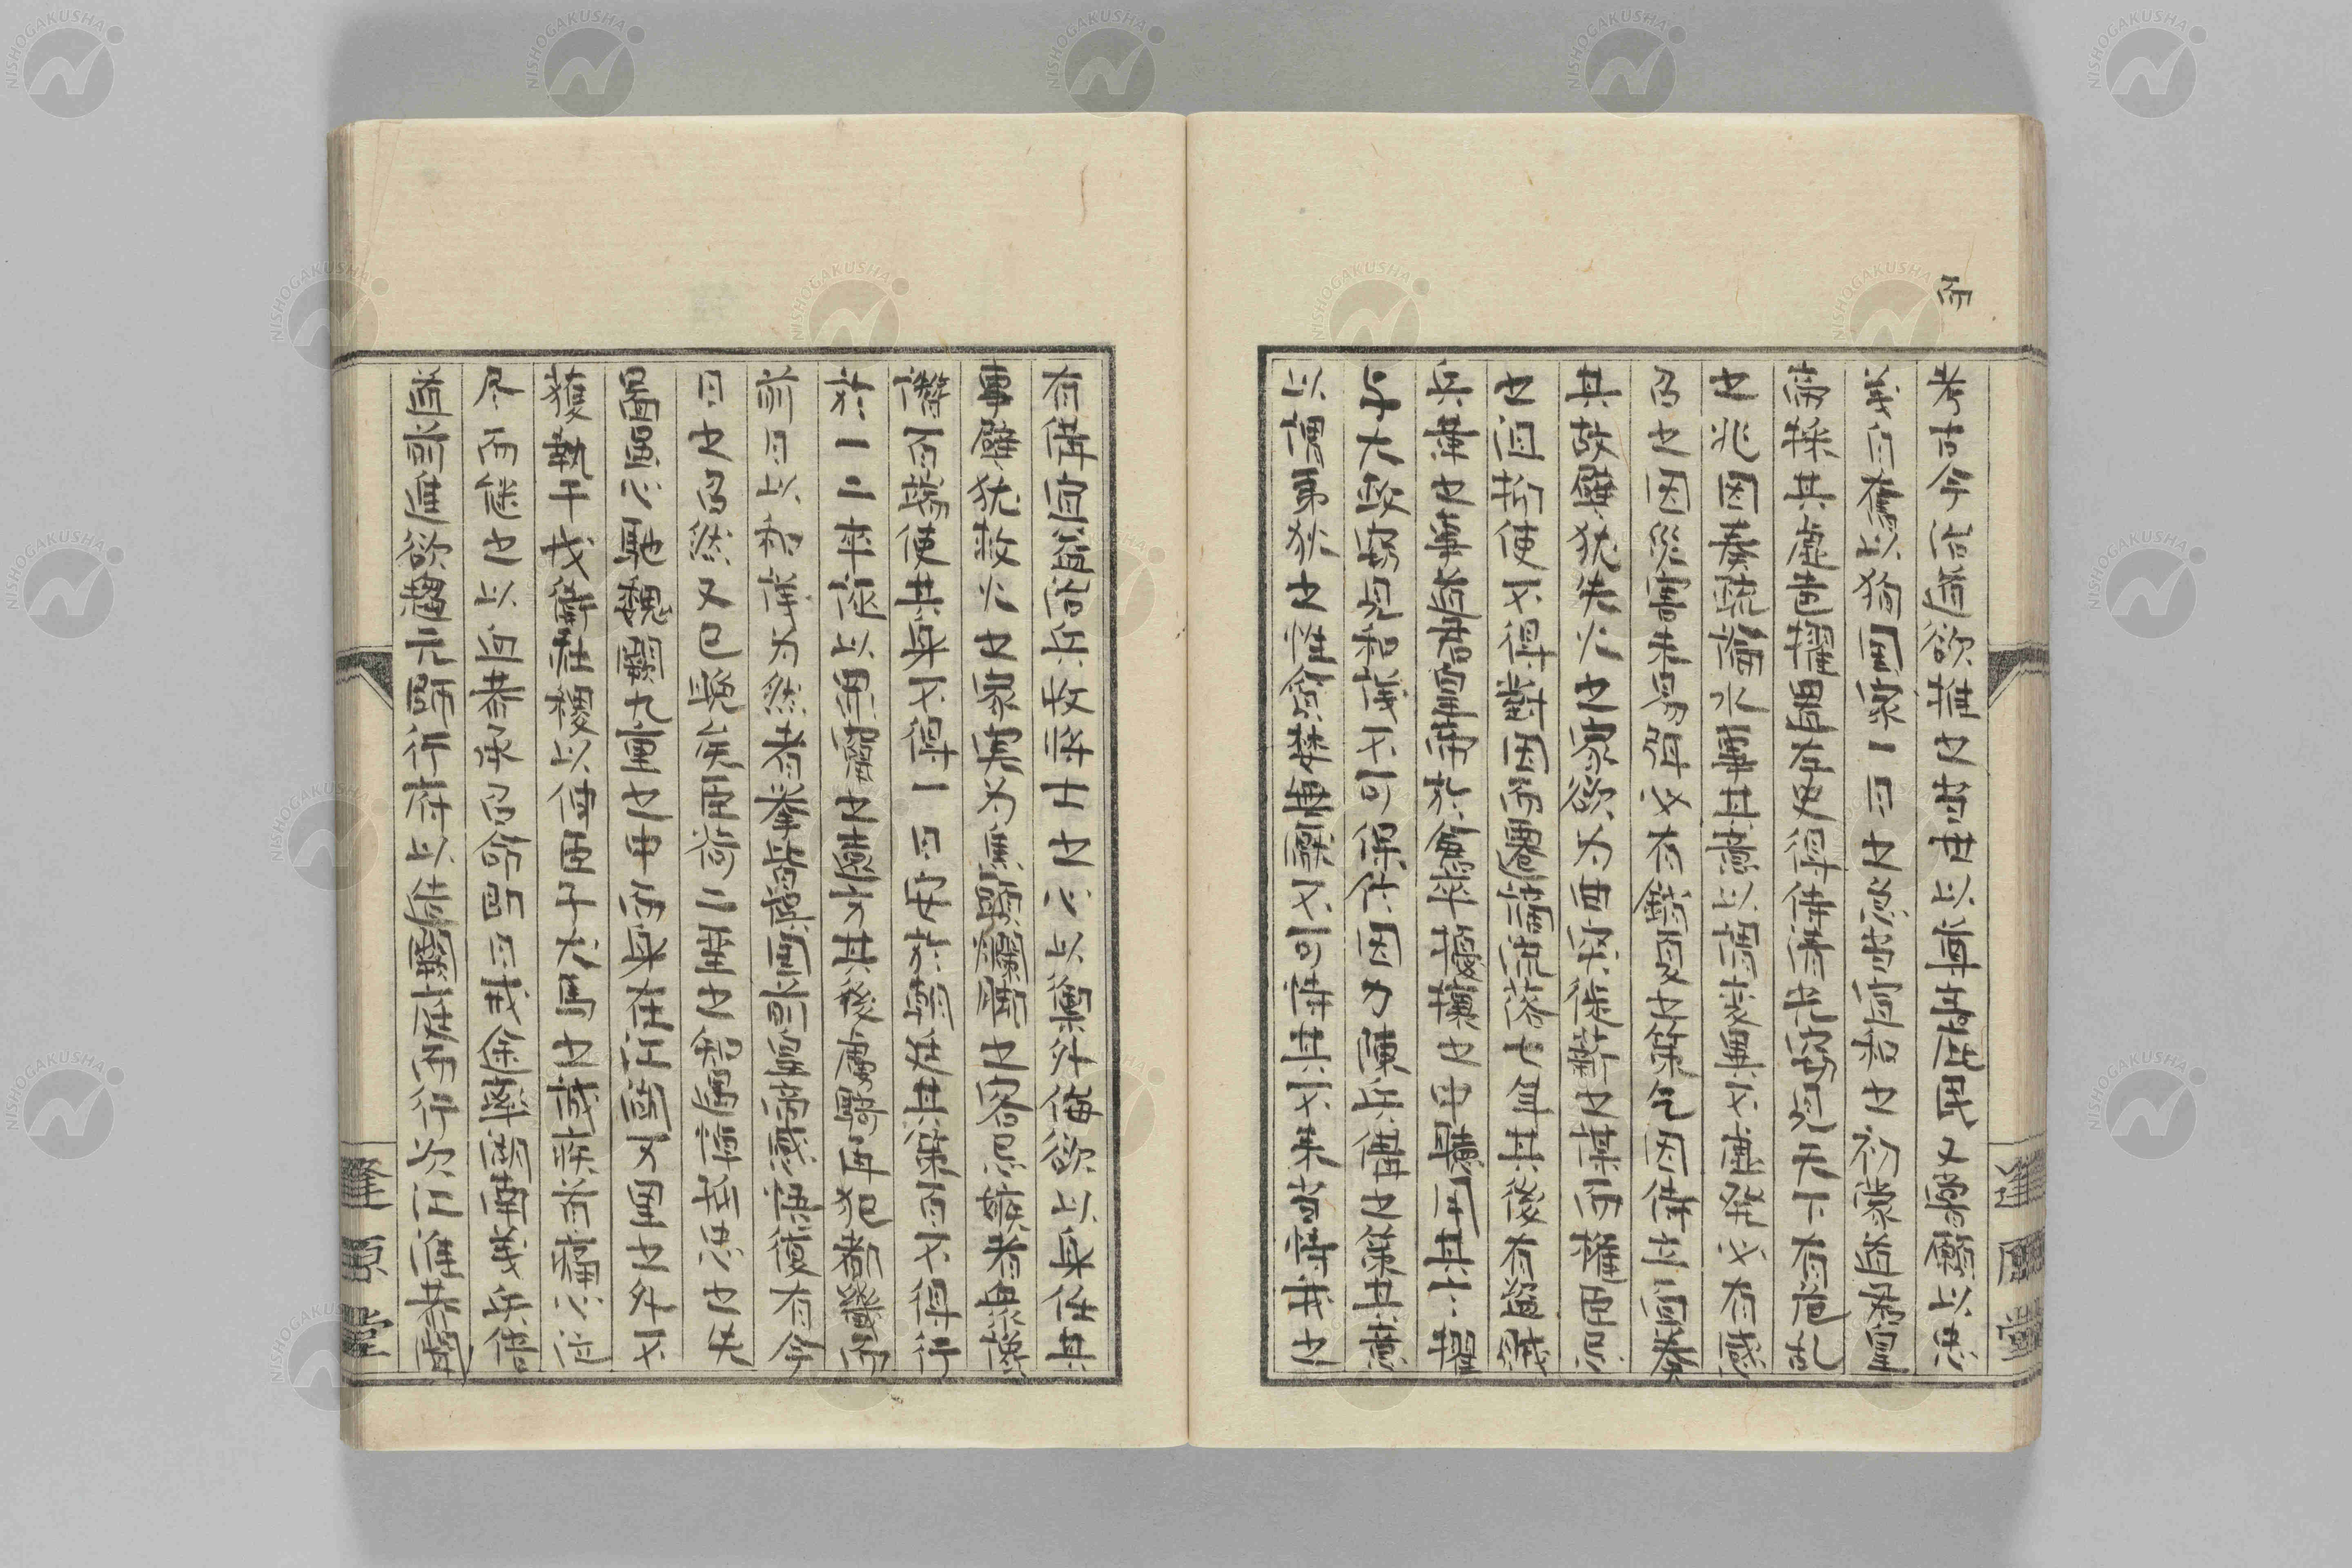 而
考古今治道欲推之當世以尊主庇民又嘗願以忠
義自奮以狥國家一日之急當宣和之初蒙道君皇
帝採其虛名擢置左史得備清光竊見天下有危乱
之兆因奏疏論水事其意以謂災異不虛發必有感
召之因災害未易弭必有銷復之策乞因侍立直奏
其故譬犹失火之家欲為曲突徙薪之謀而權臣忌
之沮抑使不得對因而遷謫流落七年其後有盜賊
兵革之事 於倉卒擾攘之中 用其 擢
与大政竊見和議不可深恃因力陳兵備之策其意
以謂夷狄之性貪婪無厭不可恃其不来當恃我之
有備宜益治兵收將士之心以禦外侮欲以身任其
事譬犹救火之家実为焦頭爛額之客忌嫉者 讒
譖百端使其身不得一日安於朝廷其策百不得行
於一二卒遂以罪竄之遠方其後虜騎再犯都畿而
前日以和議为然者 皆誤國前皇帝感悟復有今
日之召然又已晚矣臣荷二聖之知遇 忠
圖 心馳魏闕九重之中而身在江湖 里之外不
獲執干戈衛社稷以 臣子犬馬之誠疾首痛心泣
尽而继之以血恭承召命即日戒途率湖南義兵倍
道前進欲趨元帥行府以造闕庭而行次江淮恭聞
逢原堂